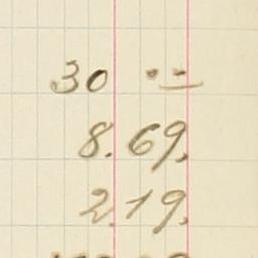 30 ..
8.69,
2.19,